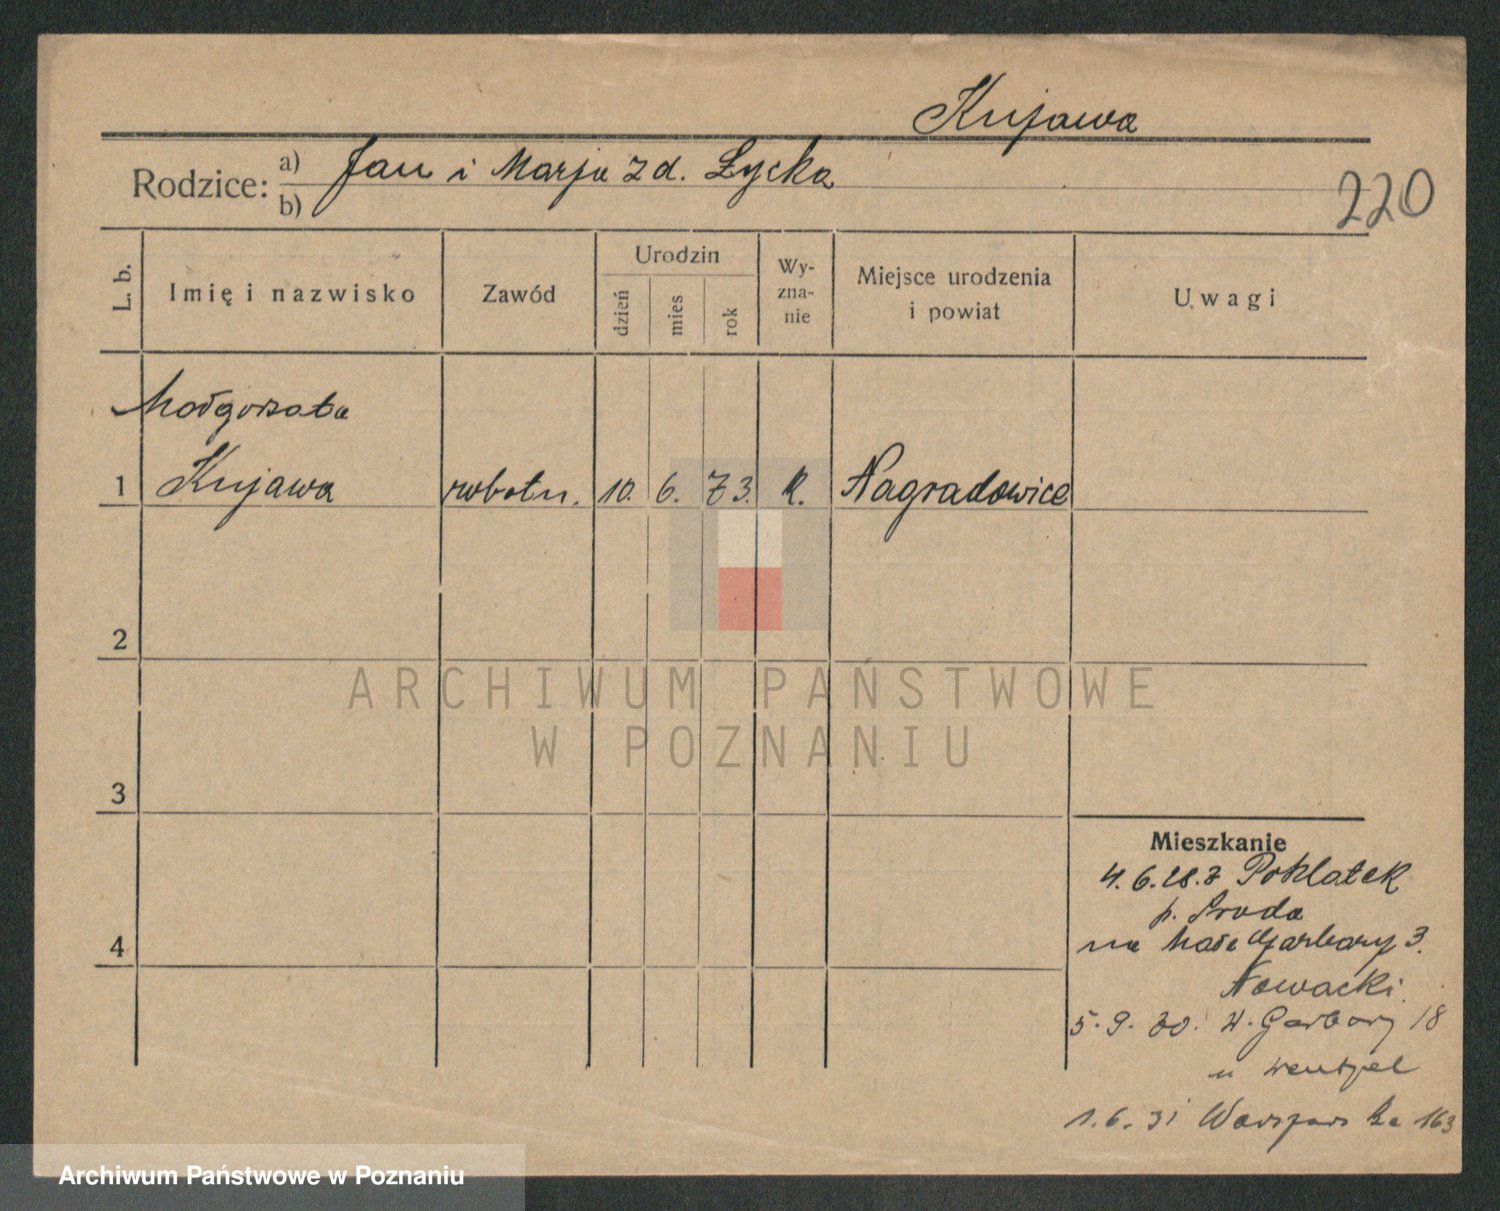 Kujawa
Rodzice: a) Jan i Marja z d. Łycka
b)
220
L. b.
Imię i nazwisko
Zawód
Urodzin
dzień
mies
rok
Wy-
zna-
nie
Miejsce urodzenia
i powiat
Uwagi
Małgorzata
1 Kujawa robotn. 10. 6. 73. k. Nagradowice
2
3
4
ARCHIWUM PAŃSTWOWE
W POZNANIU
Mieszkanie
4.6.28. z Poklatek
p. Środa
na Małe Garbary 3.
Nowacki
5.9.30. W. Garbary 18
u Wentzel
1.6.31 Warszawska 163
Archiwum Państwowe w Poznaniu